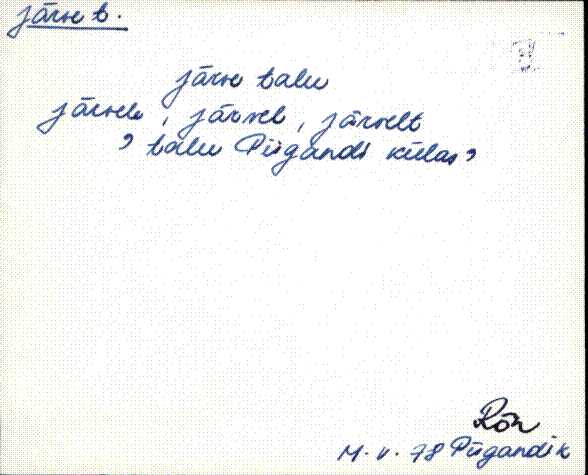 järve t.
järve talu
järvele, järvel, järvelt
, talu Piigandi külas,
Rõn
M. V. 78 Piigandi k